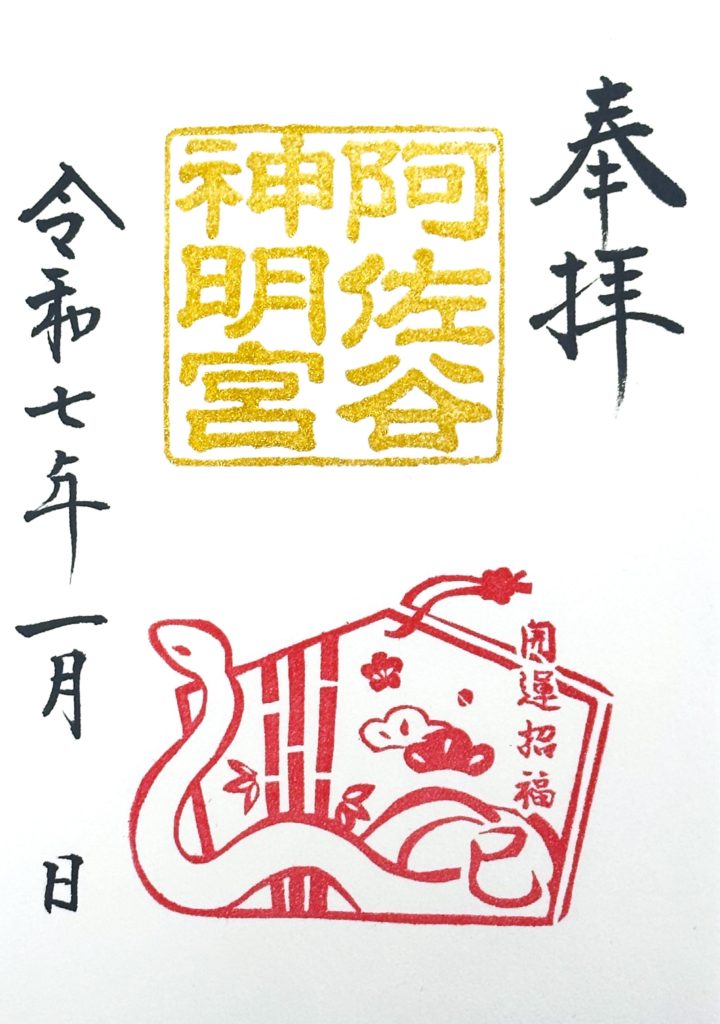 奉拝
阿佐谷
神明宮
開運招福
巳
令和七年一月 日